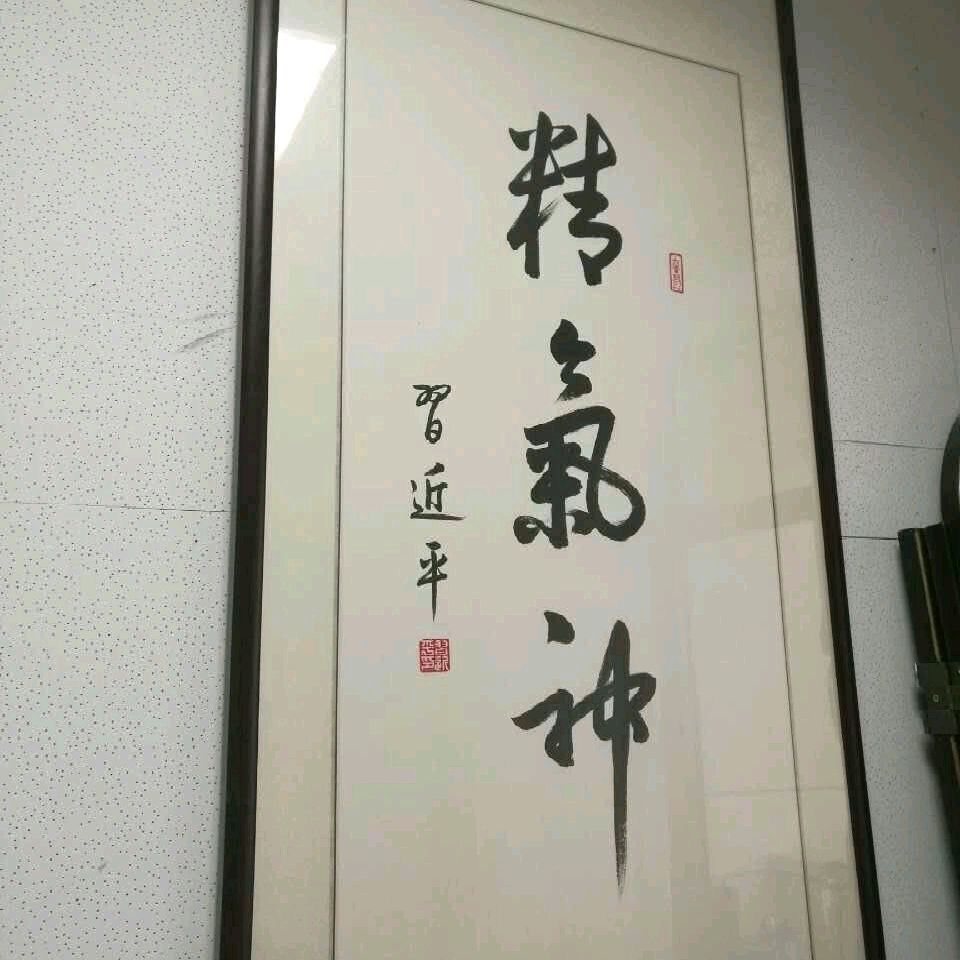 精氣神
習近平